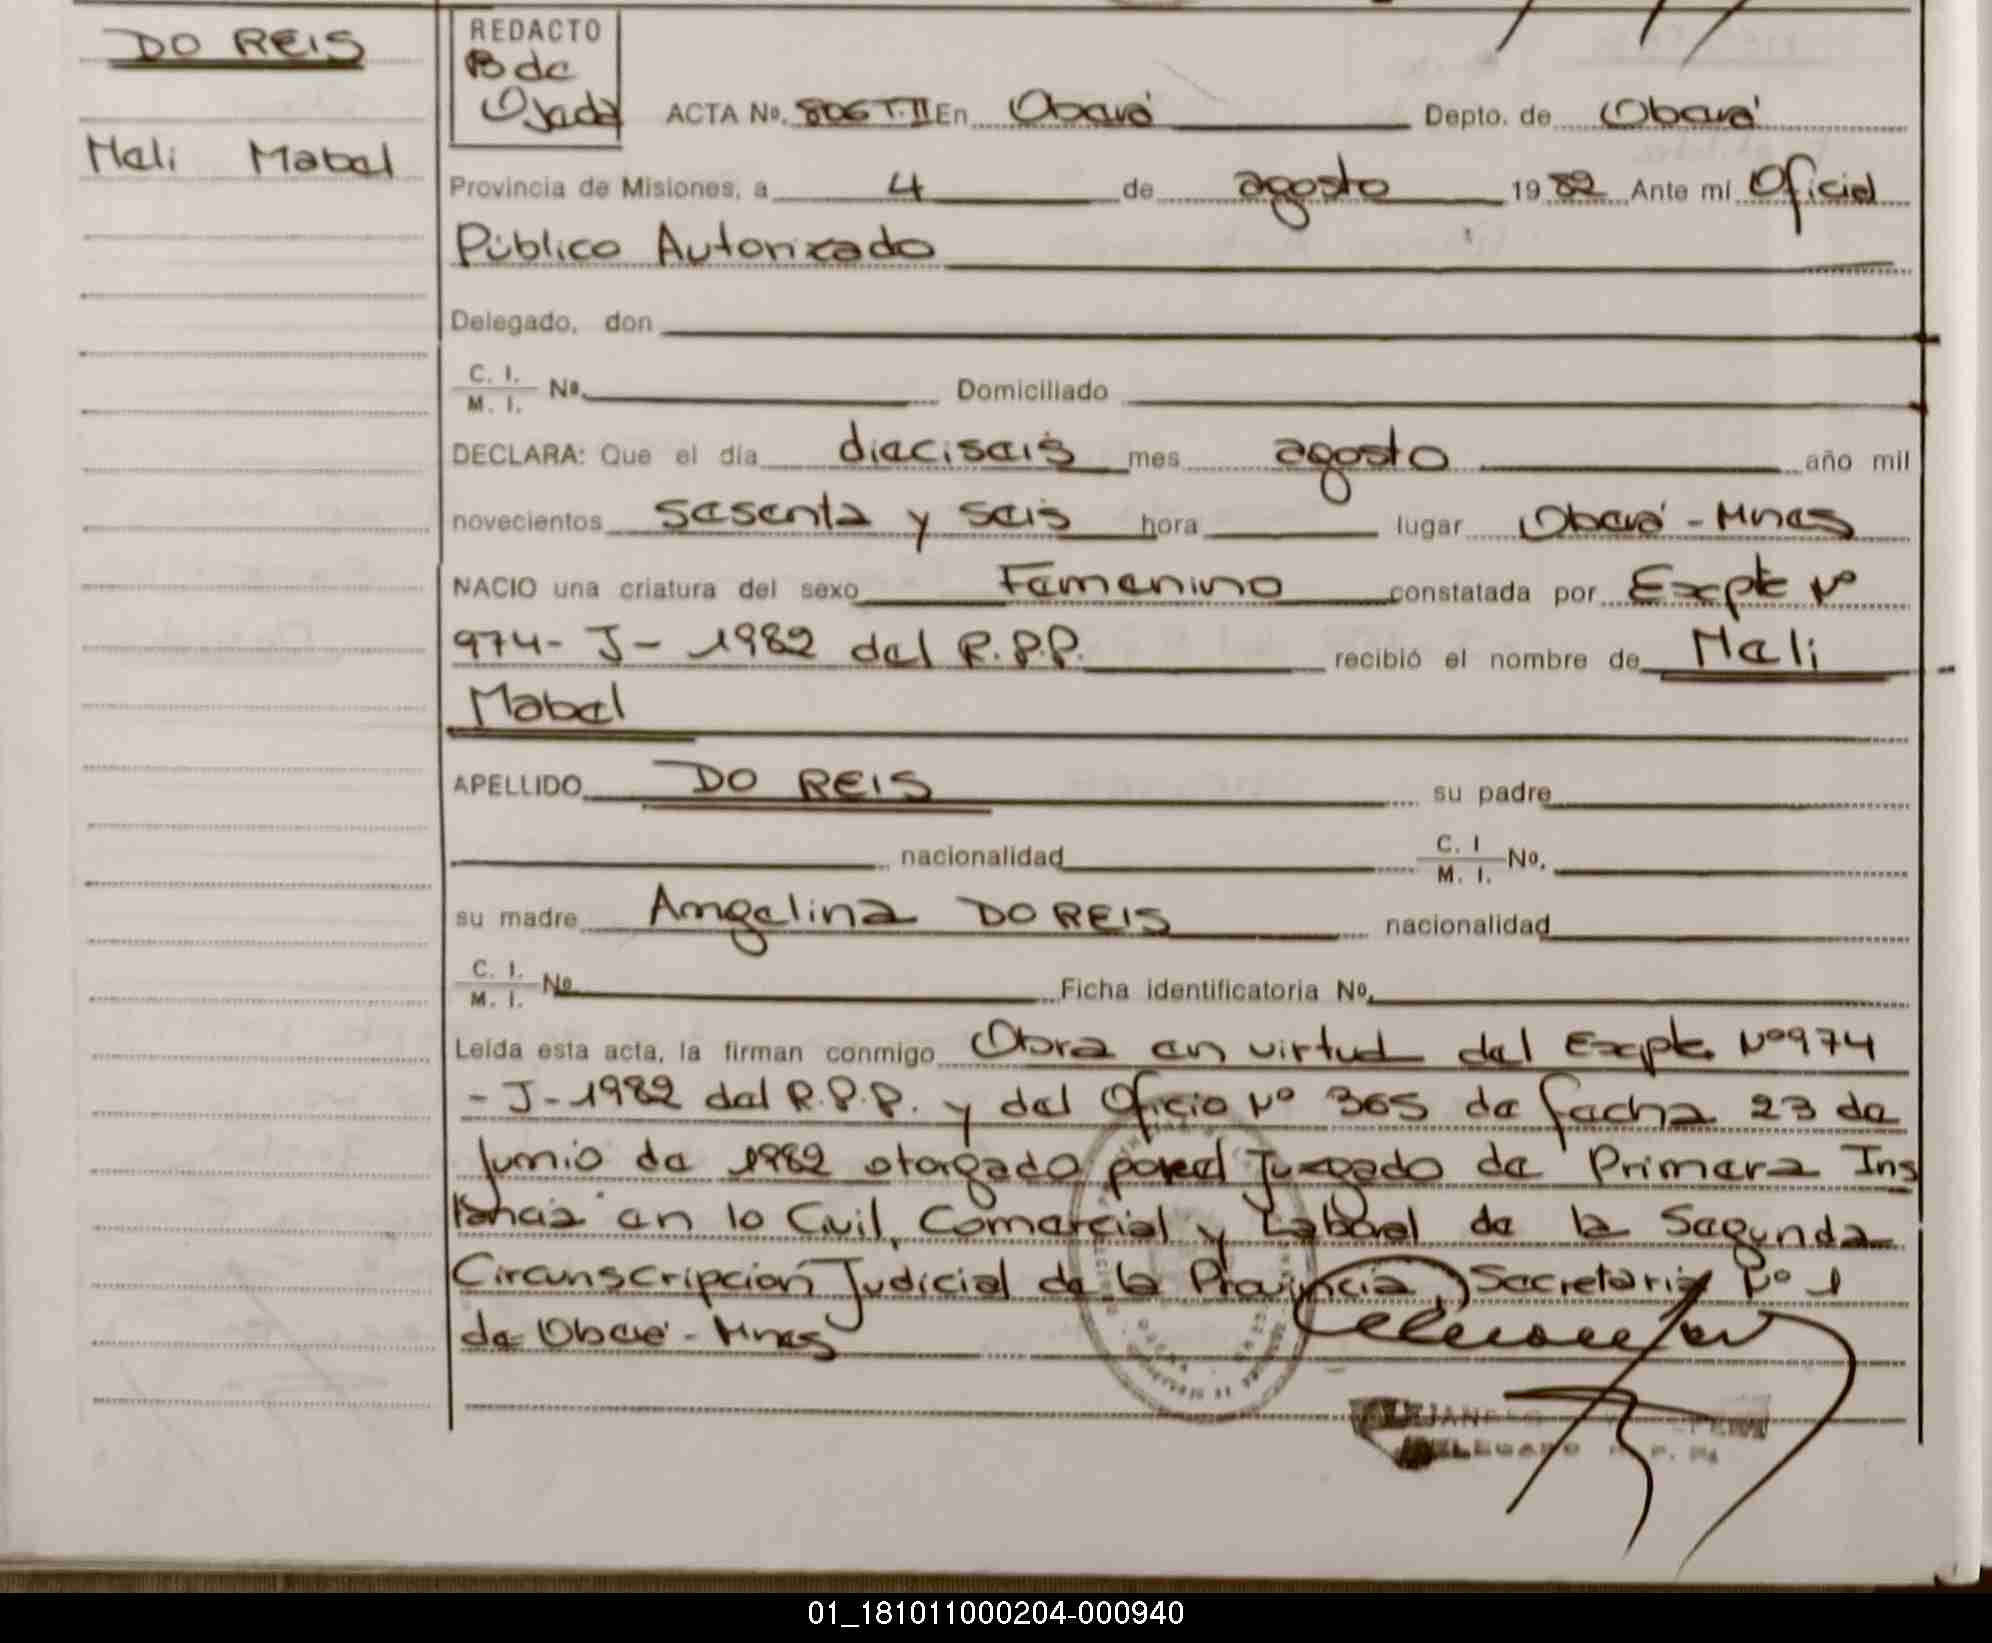 DO REIS
Meli Mabel
REDACTO
B de
Ojeda
ACTA No. 806 T.II En Oberá Depto. de Oberá
Provincia de Misiones, a 4 de agosto 1982 Ante mí Oficial
Público Autorizado
Delegado, don
C. I. / M. I. No. Domiciliado
DECLARA: Que el día dieciseis mes agosto año mil
novecientos sesenta y seis hora lugar Oberá - Mnes
NACIO una criatura del sexo Femenino constatada por Expte Nº
974 - J - 1982 del R.P.P. recibió el nombre de Meli
Mabel
APELLIDO DO REIS su padre
nacionalidad C. I / M. I. No.
su madre Angelina DO REIS nacionalidad
C. I. / M. I. No Ficha identificatoria No.
Leída esta acta, la firman conmigo Obra en virtud del Expte. Nº 974
- J - 1982 del R.P.P. y del Oficio Nº 365 de fecha 23 de
Junio de 1982 otorgado por el Juzgado de Primera Ins
tancia en lo Civil, Comercial y Laboral de la Segunda
Circunscripción Judicial de la Provincia, Secretaria Nº 1
de Oberá - Mnes
DELEGADO
01_181011000204-000940